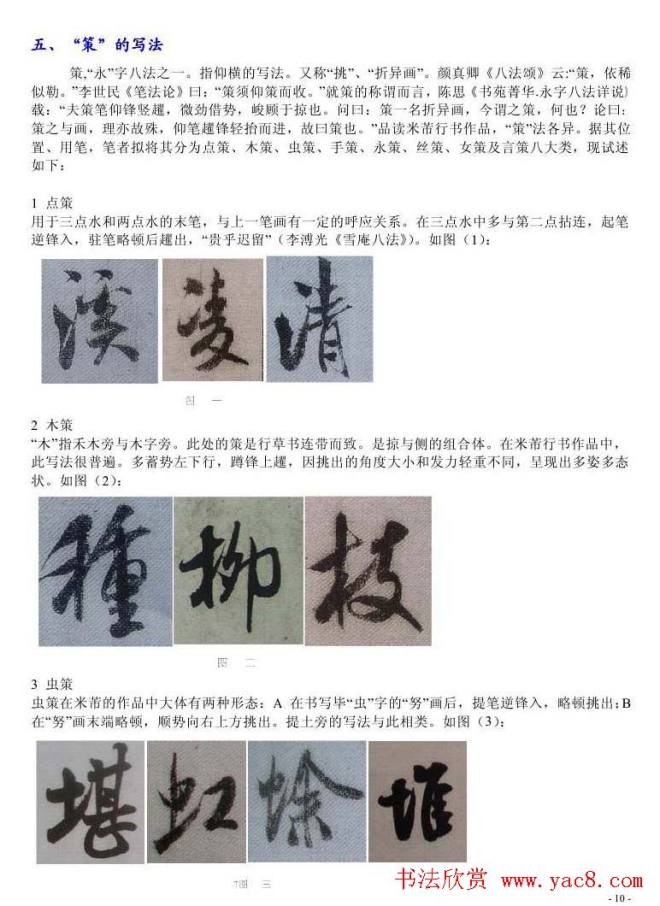 五、“策”的写法
策,“永”字八法之一。指仰横的写法。又称“挑”、“折异画”。颜真卿《八法颂》云:“策，依稀
似勒。”李世民《笔法论》曰：“策须仰策而收。”就策的称谓而言，陈思《书苑菁华·永字八法详说》
载：“夫策笔仰锋竖趯，微劲借势，峻顾于掠也。问曰：策一名折异画，今谓之策，何也？论曰：
策之与画，理亦故殊，仰笔趯锋轻抬而进，故曰策也。”品读米芾行书作品，“策”法各异。据其位
置、用笔，笔者拟将其分为点策、木策、虫策、手策、永策、丝策、女策及言策八大类，现试述
如下：
1 点策
用于三点水和两点水的末笔，与上一笔画有一定的呼应关系。在三点水中多与第二点拈连，起笔
逆锋入，驻笔略顿后趯出，“贵乎迟留”（李溥光《雪庵八法》）。如图（1）：
溪 凌 清
图 一
2 木策
“木”指禾木旁与木字旁。此处的策是行草书连带而致。是掠与侧的组合体。在米芾行书作品中，
此写法很普遍。多蓄势左下行，蹲锋上趯，因挑出的角度大小和发力轻重不同，呈现出多姿多态
状。如图（2）：
種 柳 枝
图 二
3 虫策
虫策在米芾的作品中大体有两种形态：A 在书写毕“虫”字的“努”画后，提笔逆锋入，略顿挑出；B
在“努”画末端略顿，顺势向右上方挑出。提土旁的写法与此相类。如图（3）：
堪 虹 堆
图 三
书法欣赏 www.yac8.com
- 10 -